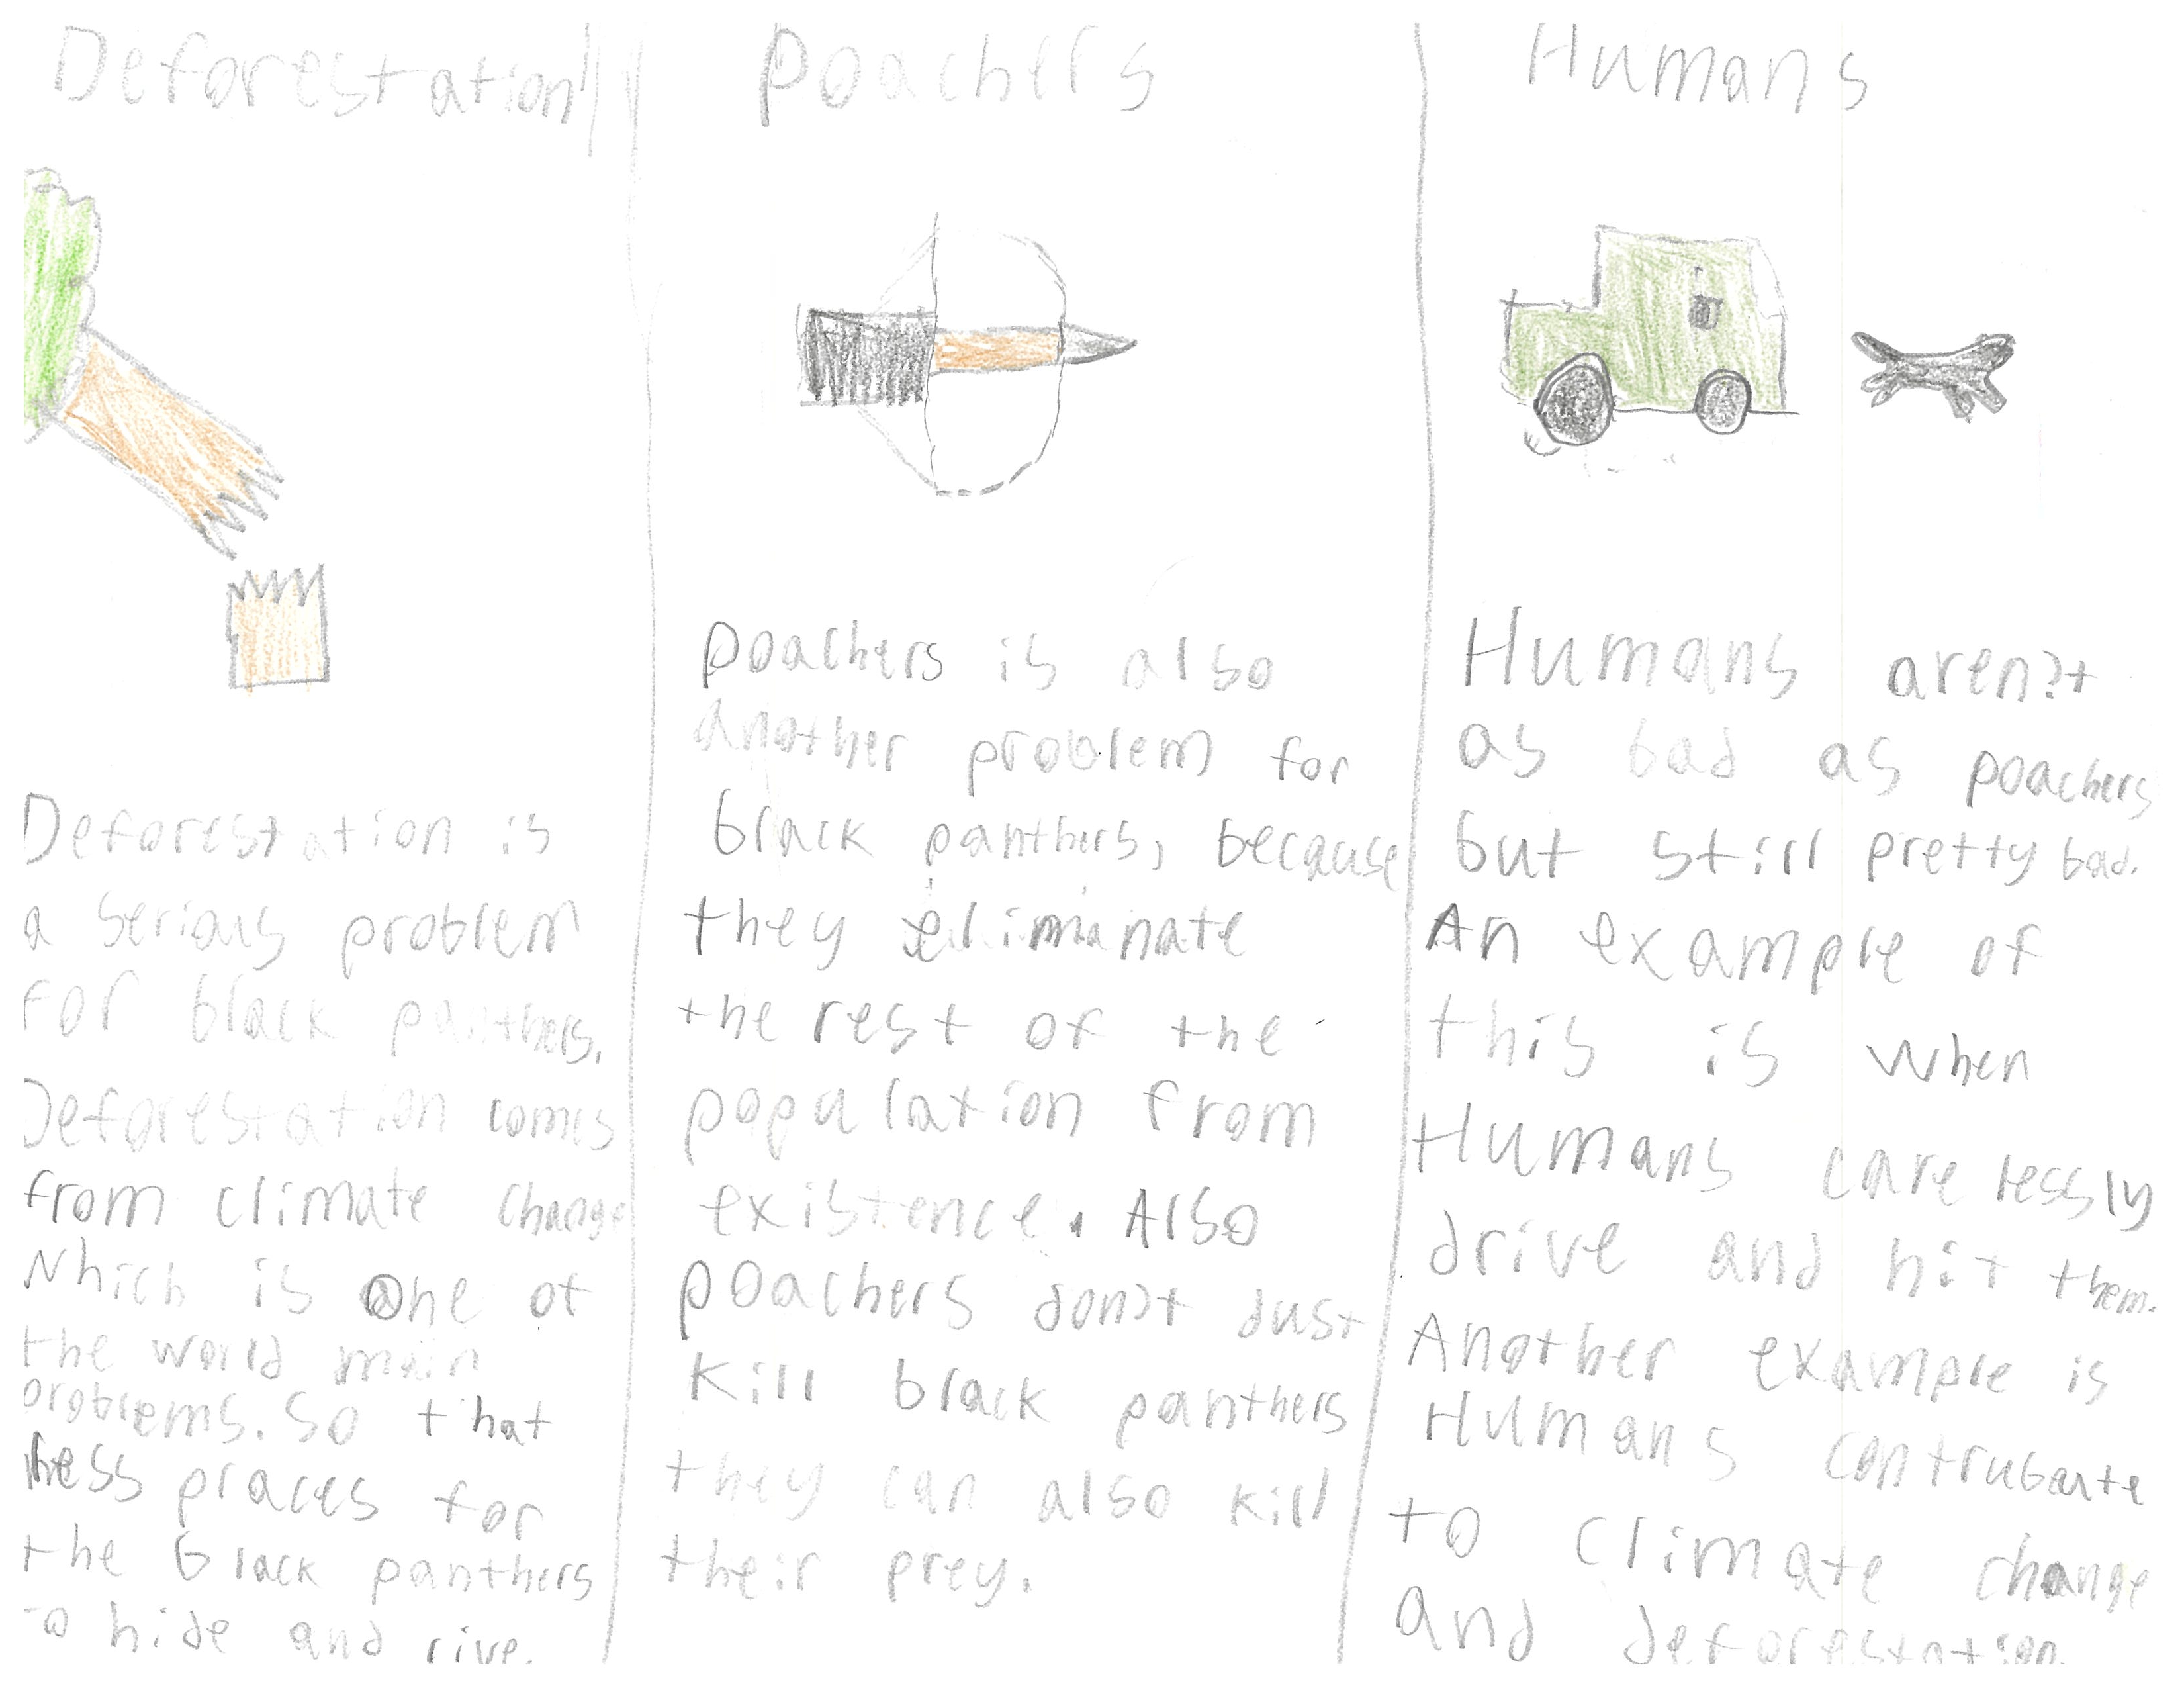 Deforestation
Deforestation is
a serious problem
for black panthers.
Deforestation comes
from climate change
Which is one of
the world main
problems. So that
less places for
the black panthers
to hide and live.
Poachers
Poachers is also
another problem for
black panthers, because
they eliminate
the rest of the
population from
existence. Also
poachers don't just
kill black panthers
they can also kill
their prey.
Humans
Humans aren't
as bad as poachers
but still pretty bad.
An example of
this is when
Humans carelessly
drive and hit them.
Another example is
Humans contrubute
to climate change
and deforestation.